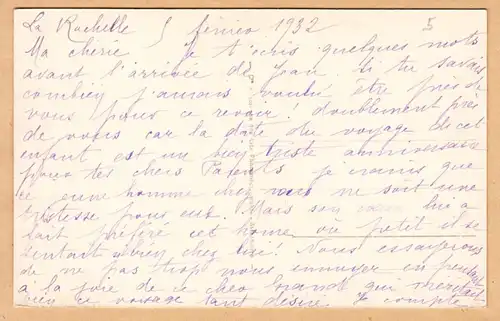 La Rochelle 5 février 1932 5
Ma chérie Je t'écris quelques mots
avant l'arrivée de Jean. Si tu savais
combien j'aurais voulu être près de
vous pour ce revoir! doublement près
de vous car la date du voyage de cet
enfant est un bien triste anniversaire
pour tes chers Parents je crains que
ce jeune homme chez vous ne soit une
tristesse pour eux. Mais son lui a
fait préféré cet home où petit il se
sentait si bien chez lui! Nous essayerons
de ne pas trop nous ennuyer en pensant
à la joie de ce cher Grand qui méritait
bien ce voyage tant désiré. Je compte